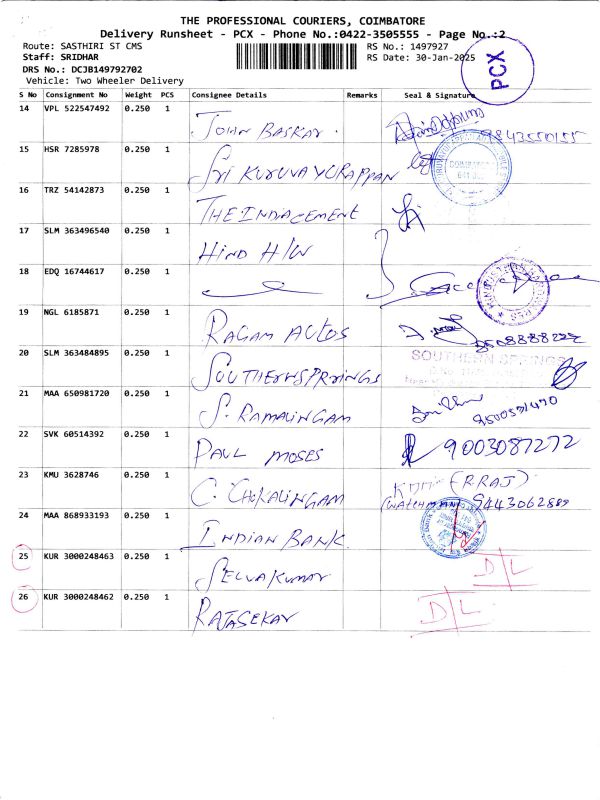 THE PROFESSIONAL COURIERS, COIMBATORE
Delivery Runsheet - PCX - Phone No.:0422-3505555 - Page No.:2
Route: SASTHIRI ST CMS
RS No.: 1497927
Staff: SRIDHAR
RS Date: 30-Jan-2025
DRS No.: DCJB149792702
Vehicle: Two Wheeler Delivery
PCX
S No Consignment No Weight PCS Consignee Details Remarks Seal & Signature
14 VPL 522547492 0.250 1 JOHN BASKAR.
15 HSR 7285978 0.250 1 SRI KURUVAYURAPPAN
16 TRZ 54142873 0.250 1 THE INDACEMENT
17 SLM 363496540 0.250 1 HIND H/W
18 EDQ 16744617 0.250 1
19 NGL 6185871 0.250 1 RAGAM AUTOS
20 SLM 363484895 0.250 1 SOUTHERNSPRINGS SOUTHERN SPRINGS
21 MAA 650981720 0.250 1 S. RAMALINGAM
22 SVK 60514392 0.250 1 PAUL MOSES 9003087272
23 KMU 3628746 0.250 1 C. CHOKALINGAM (R.RAJ)
(WATCHMAN) 9443062889
24 MAA 868933193 0.250 1 INDIAN BANK.
25 KUR 3000248463 0.250 1 SELVAKUMAR D/L
26 KUR 3000248462 0.250 1 RAJASEKAR D/L